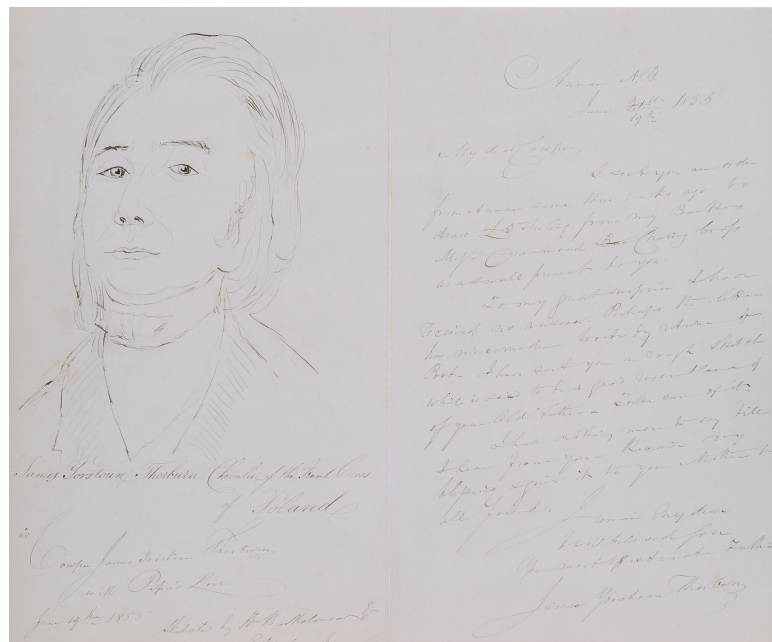 James Torstoun Thorburn Chevalier of the Cross
of Poland
To
Cowper James Torstoun Thorburn
with Papa's Love
June 19th 1855 Sketch by H Bartholomew
Annan N.B.
June 1855
19th
My dear Cowper,
I sent you an order
from Annan some three weeks ago to
draw £5 sterling from my Bankers
Messrs Drummond Charing Cross
as a small present to you
To my great surprise I have
received no answer Perhaps the letter
has miscarried. Write by return of
Post. I have sent you a rough sketch
which is said to be a good resemblance of
your Old Father Take care of it.
I have nothing more to say till
I hear from you Receive my
blessing again it to you Mother &
all friends.
I remain my dear
& well beloved Son
Your most affectionate Father
James Torstoun Thorburn